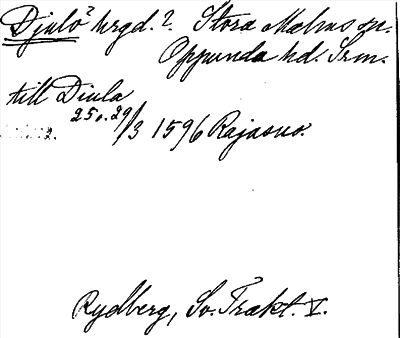 Djulö² hrgd. ?. Stora Malms sn.
Oppunda hd. Srm.
till Diula
25 o. 29/3 1596 Rajasuo.
Rydberg, Sv. Trakt. V.